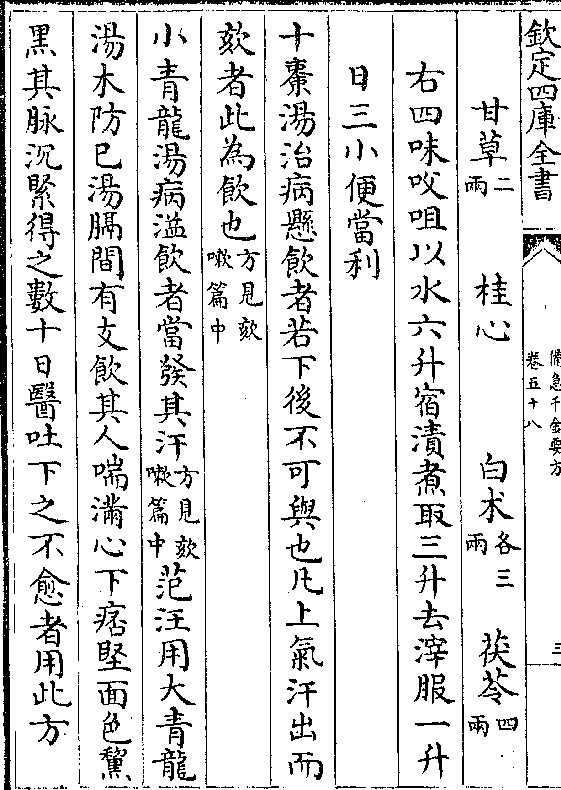 欽定四庫全書
備急千金要方
卷五十八
三
甘草二兩 桂心 白术各三兩 茯苓四兩
右四味㕮咀以水六升宿漬煮取三升去滓服一升
日三小便當利
十棗湯治病懸飲者若下後不可與也凡上氣汗出而
欬者此為飲也方見欬嗽篇中
小青龍湯病溢飲者當發其汗方見欬嗽篇中范汪用大青龍
湯木防已湯膈間有支飲其人喘滿心下痞堅面色黧
黑其脉沉緊得之數十日醫吐下之不愈者用此方